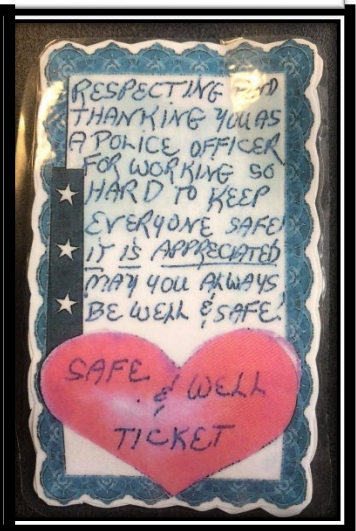 RESPECTING AND
THANKING YOU AS
A POLICE OFFICER
FOR WORKING SO
HARD TO KEEP
EVERYONE SAFE!
IT IS APPRECIATED
MAY YOU ALWAYS
BE WELL & SAFE!
SAFE
& WELL
TICKET